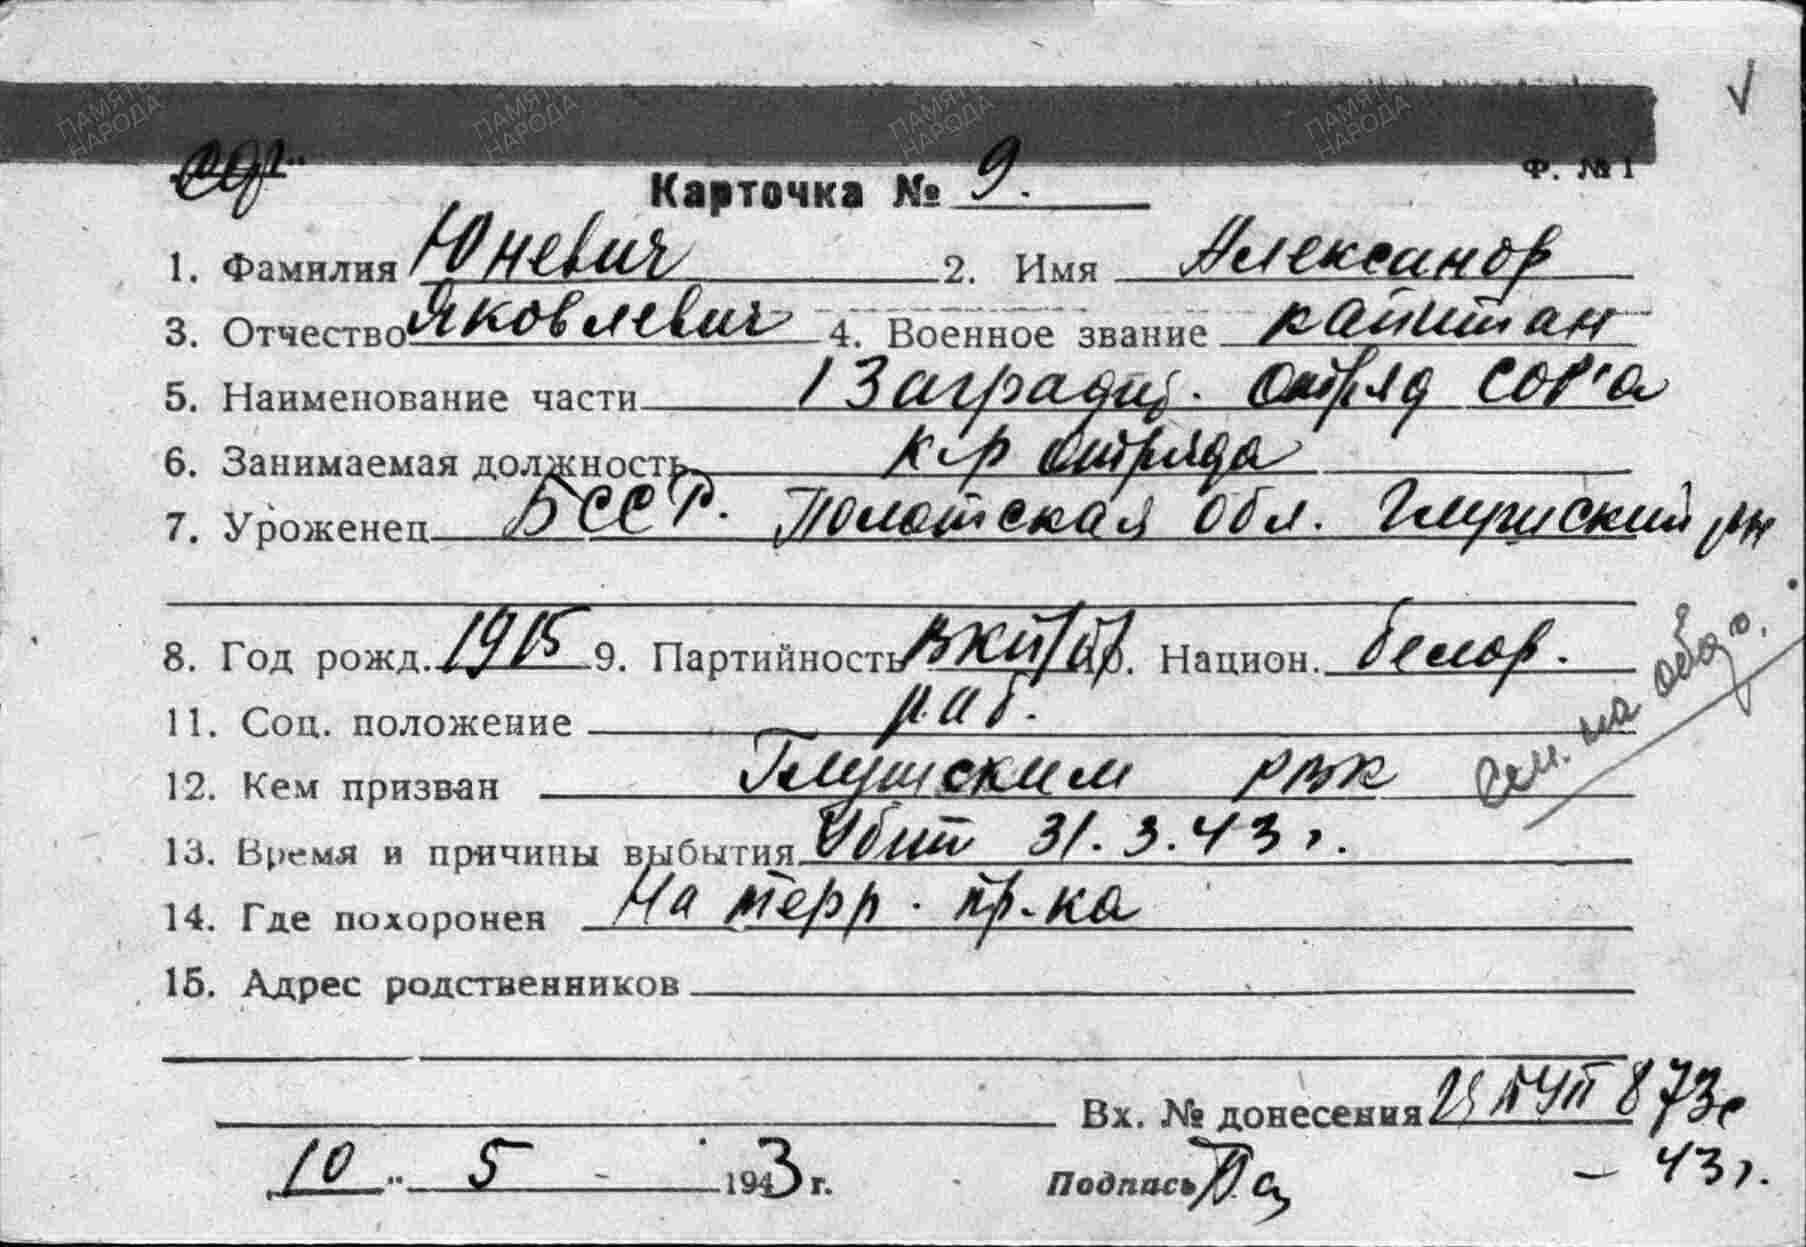 ПАМЯТЬ НАРОДА ПАМЯТЬ НАРОДА ПАМЯТЬ НАРОДА ПАМЯТЬ НАРОДА
Ф. № 1
Карточка № 9.
1. Фамилия Юневич 2. Имя Александр
3. Отчество Яковлевич 4. Военное звание капитан
5. Наименование части 1 Заградит. отряд СОР'а
6. Занимаемая должность к-р отряда
7. Уроженец БССР. Полотская обл. Глушский рн
8. Год рожд. 1915 9. Партийность ВКП/б/ 10. Национ. белор.
11. Соц. положение раб.
12. Кем призван Глушским РВК
См. на обор.
13. Время и причины выбытия Убит 31.3.43 г.
14. Где похоронен На терр. пр-ка
15. Адрес родственников
Вх. № донесения ЦБПУП 873с
- 43 г.
10 " 5 1943 г. Подпись